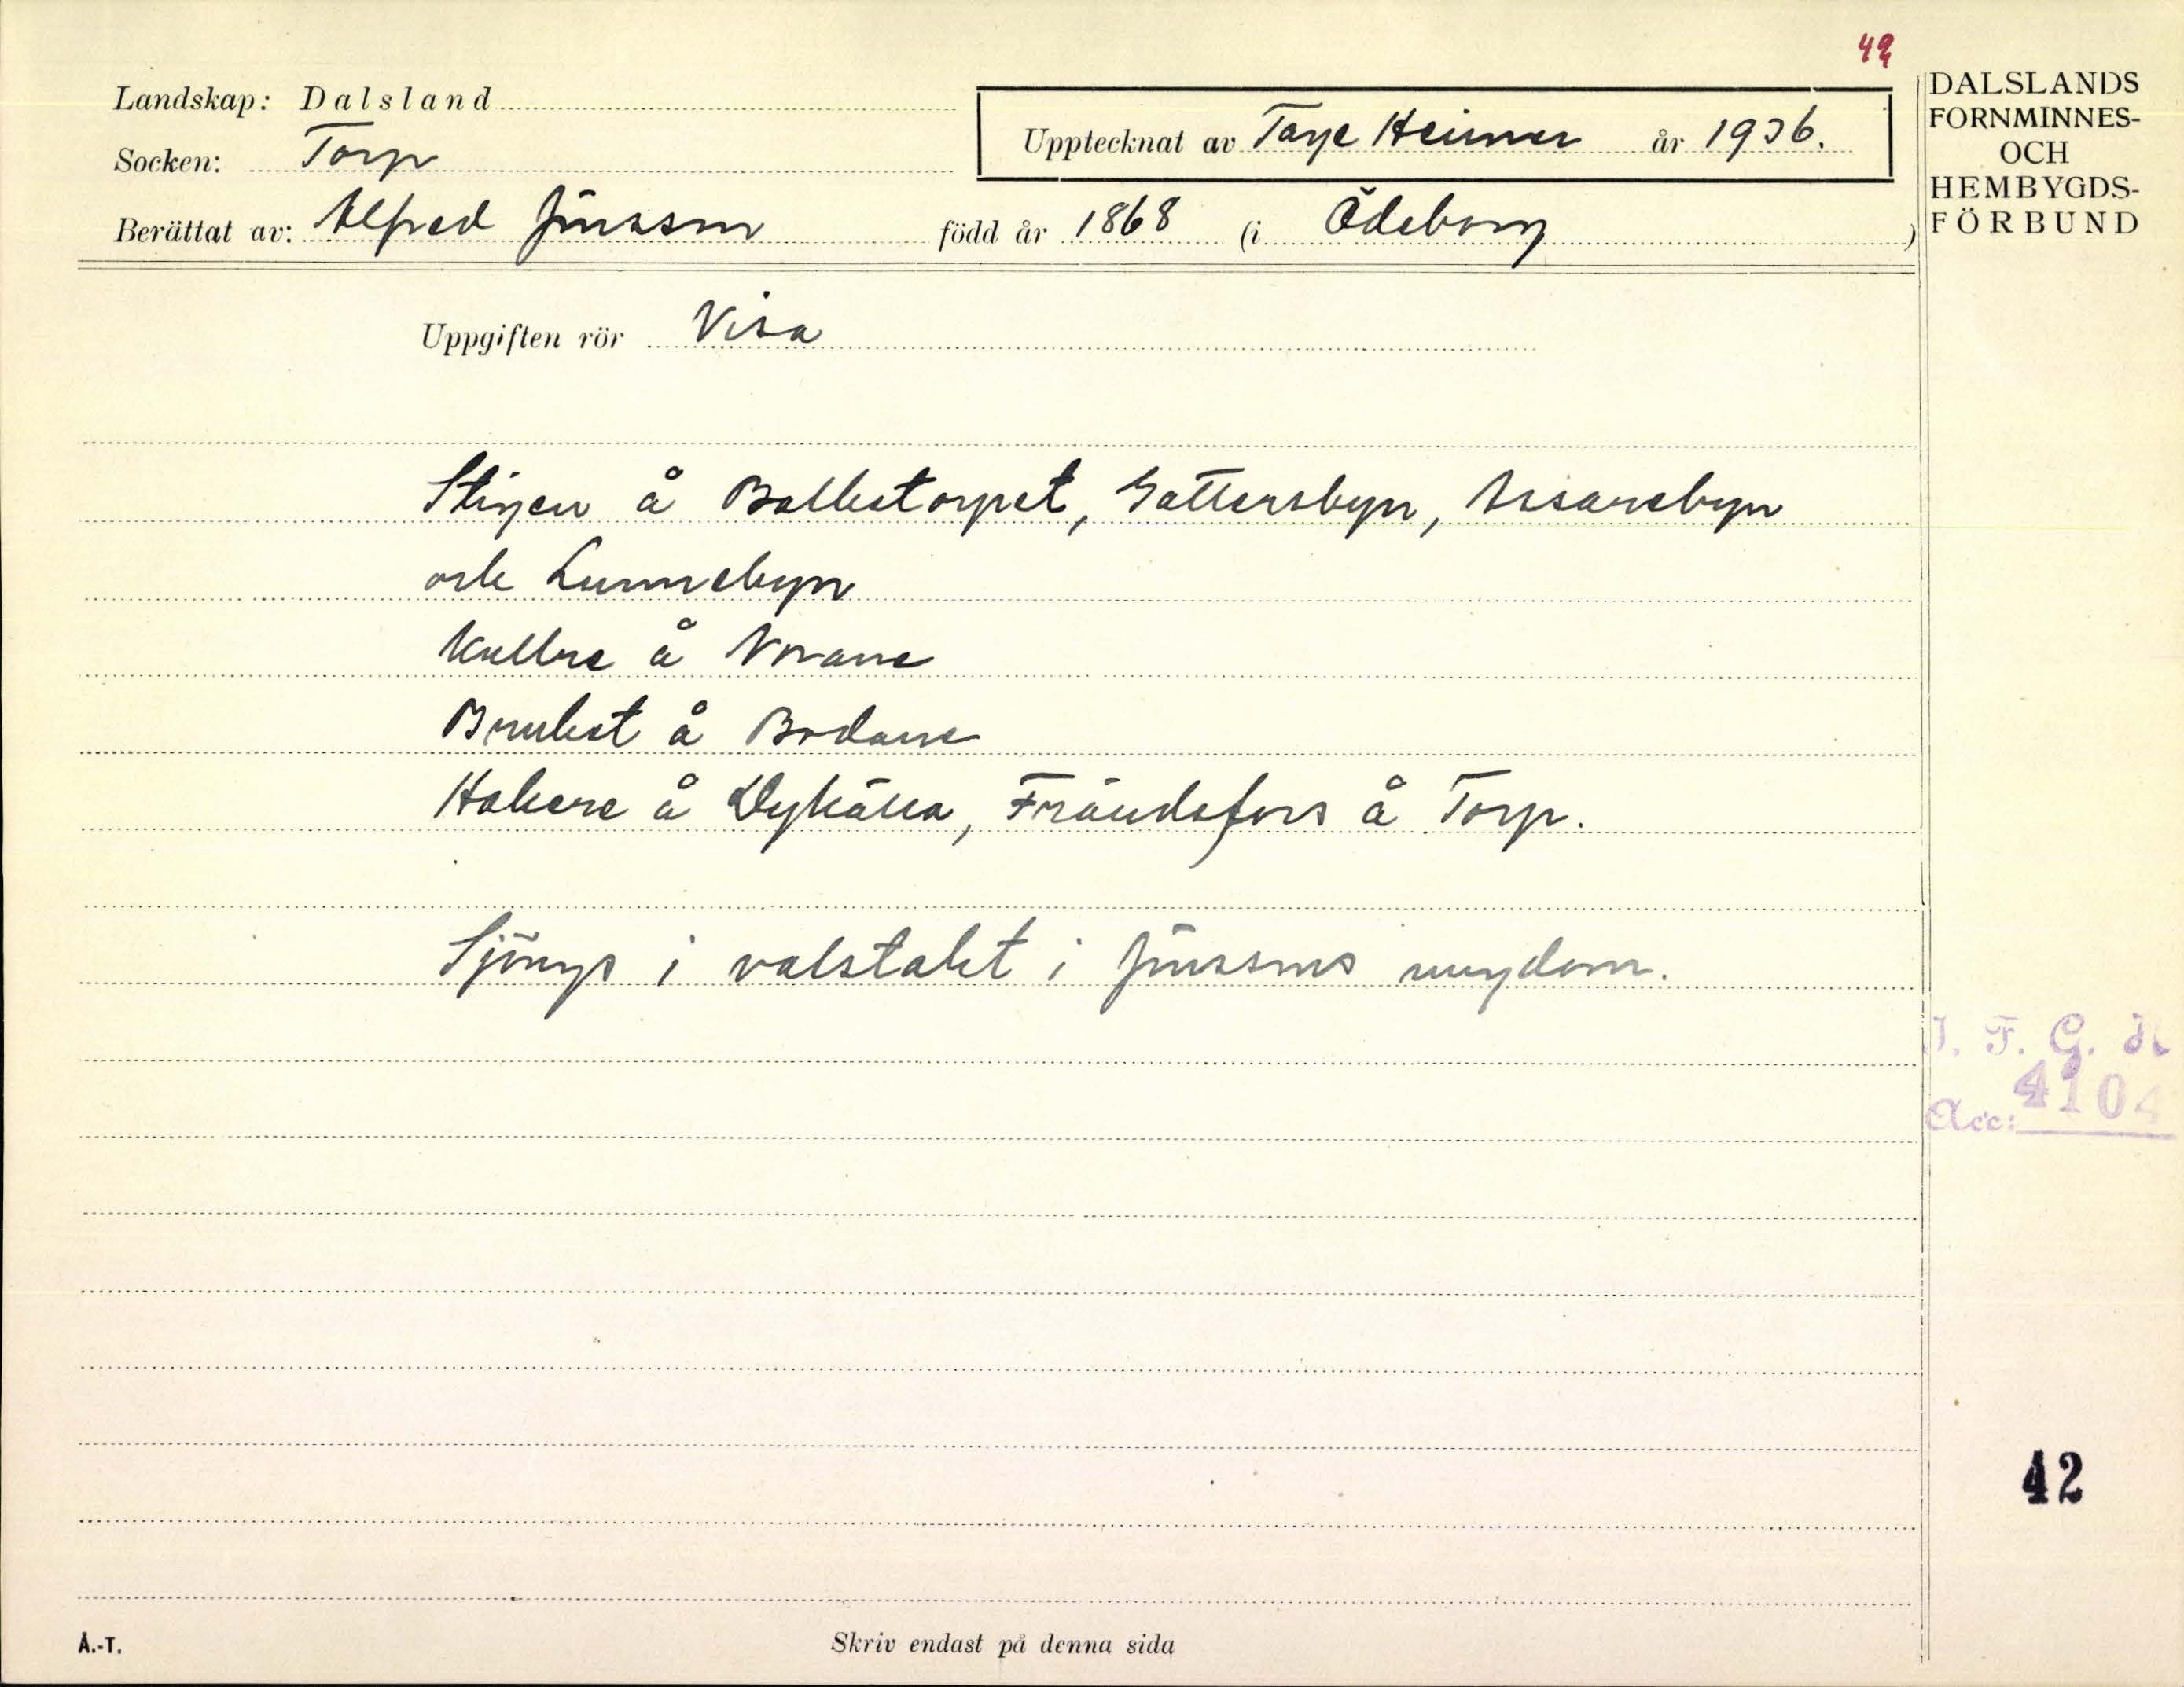 42
Landskap: Dalsland
Socken: Torp
Upptecknat av Tage Heimer år 1936.
Berättat av: Alfred Jönsson född år 1868 (i Ödeborg)
DALSLANDS
FORNMINNES-
OCH
HEMBYGDS-
FÖRBUND
Uppgiften rör Visa
Stigen å Balletorpet, Gattersbyn, Assarebyn
och Lunnebyn
Kullne å Norane
Bruket å Bodane
Hakere å Dykälla, Frändefors å Torp.
Sjöngs i valstakt i Jönssons ungdom.
I. F. G. H
Acc: 4104
42
Å.-T.
Skriv endast på denna sida